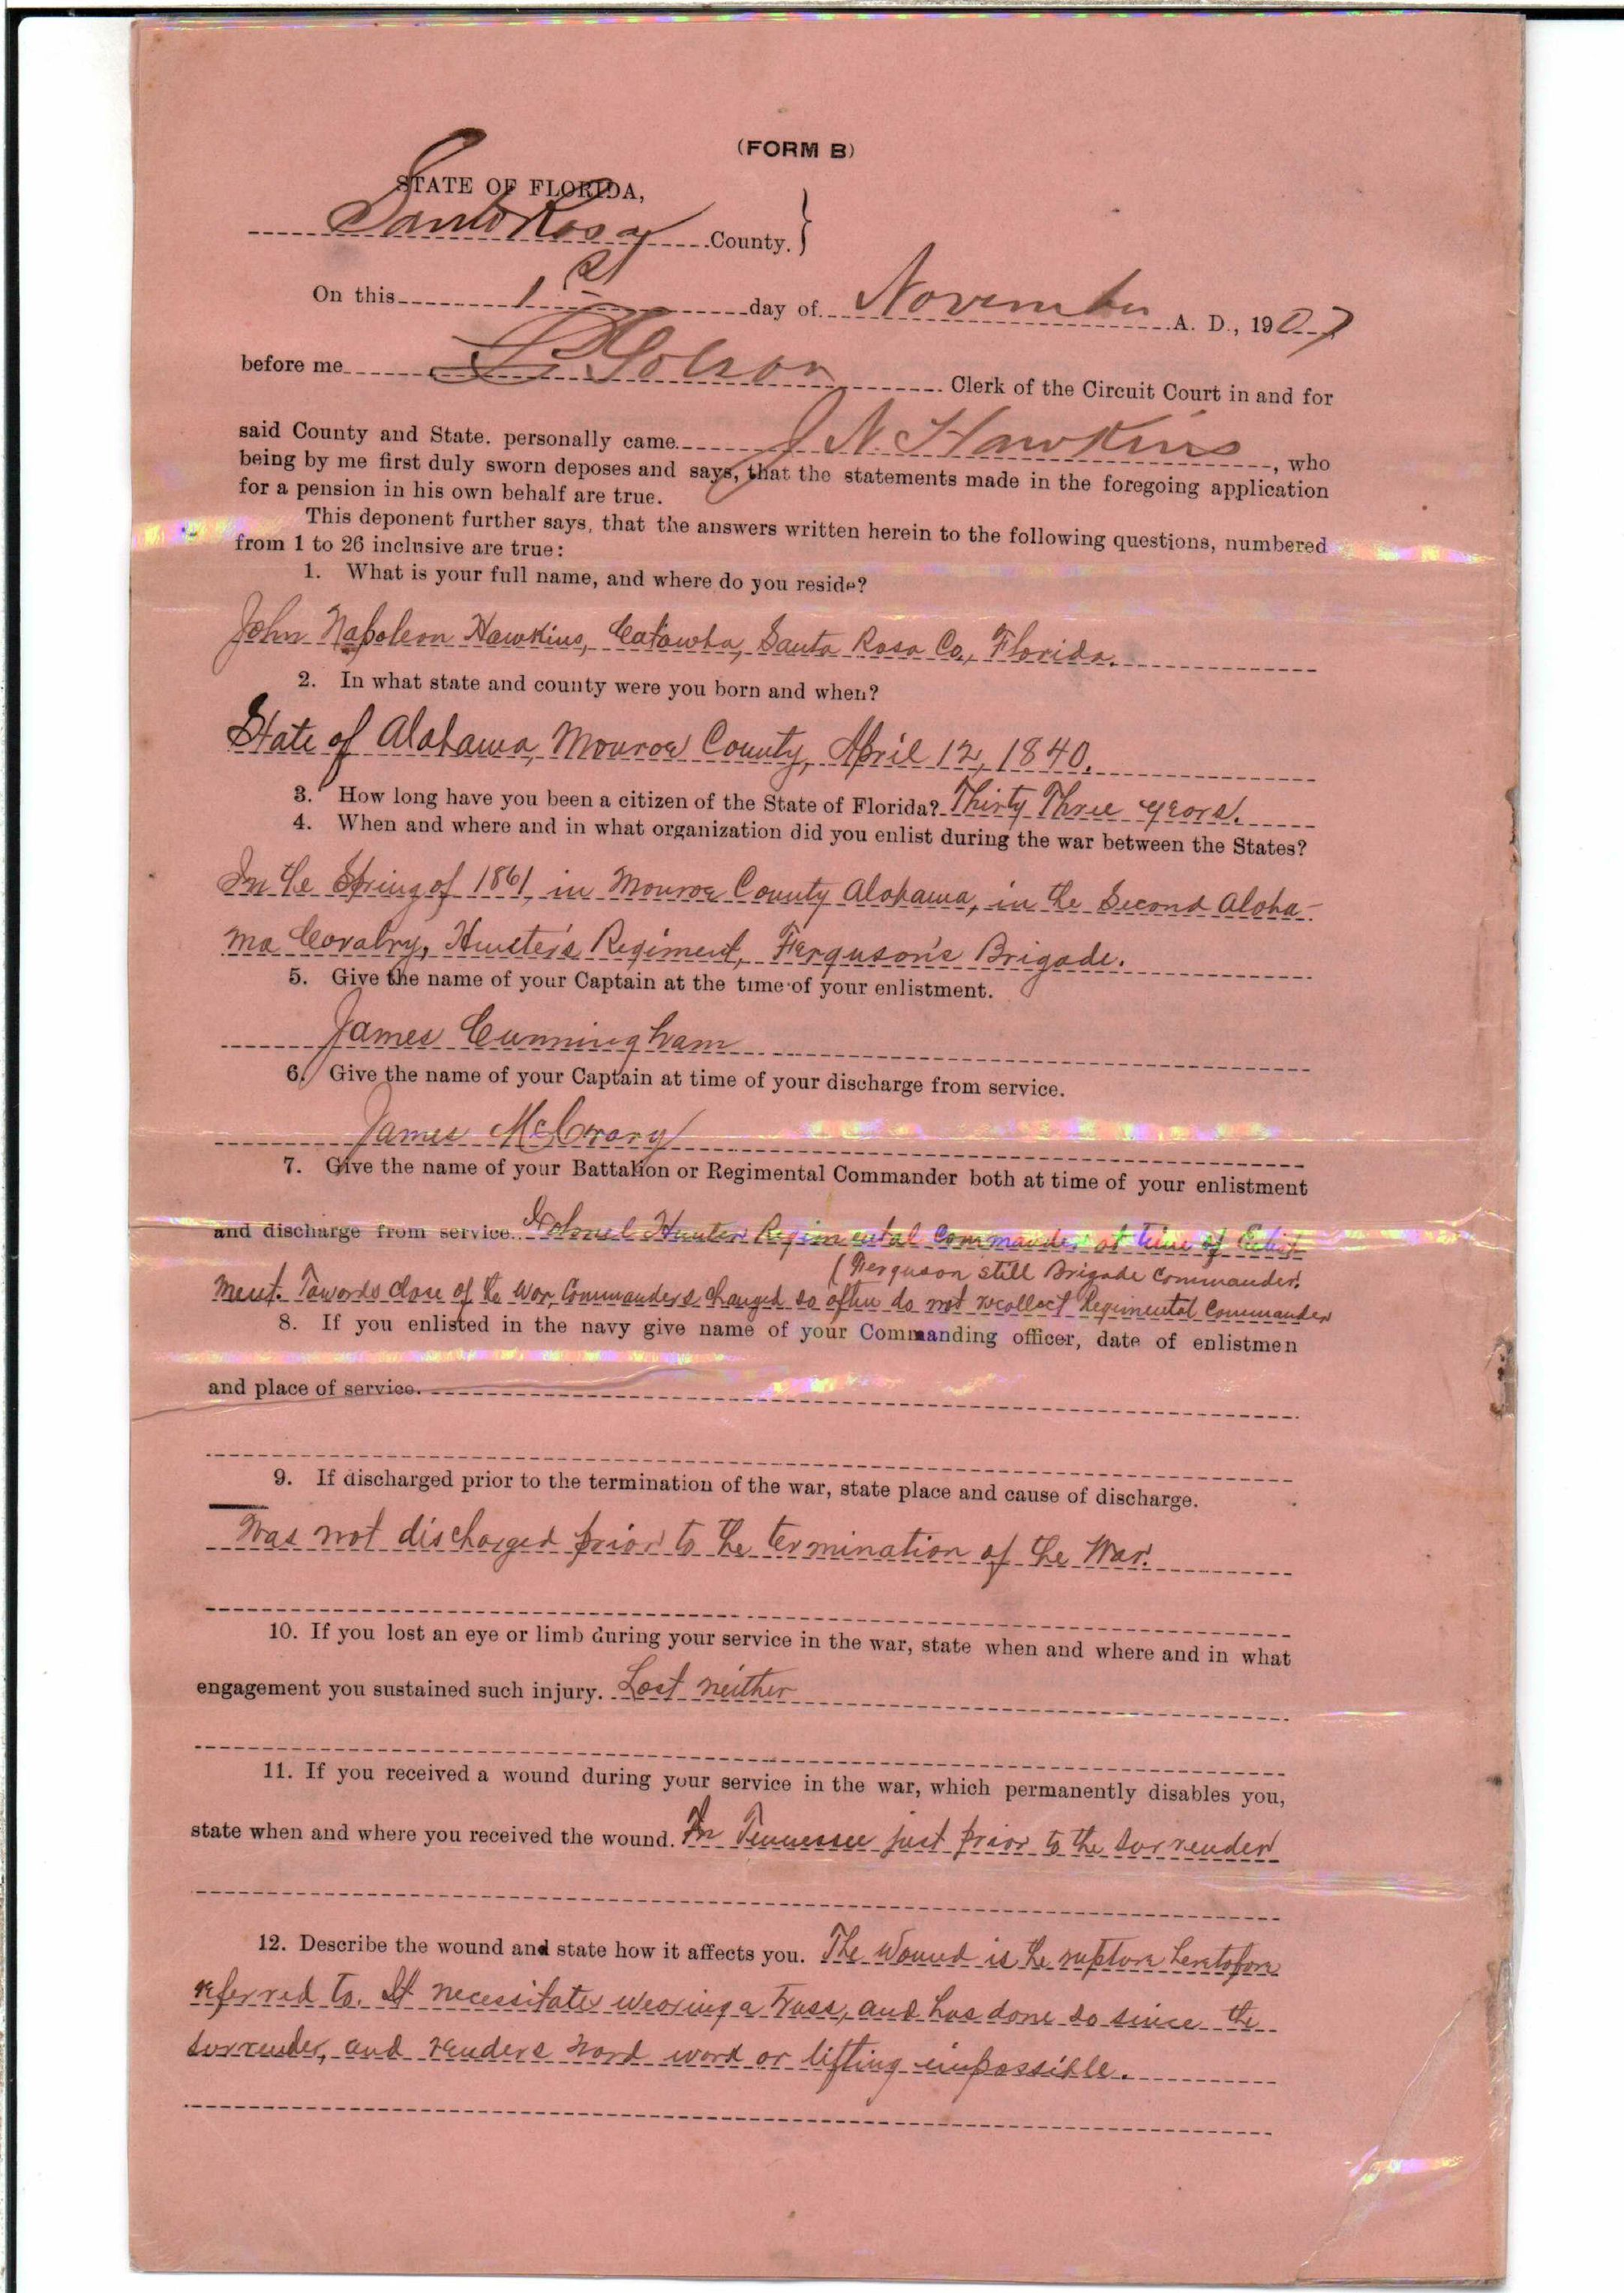 (FORM B)
STATE OF FLORIDA,
Santa Rosa County. }
On this 1st day of November A. D., 1907
before me Golson Clerk of the Circuit Court in and for
said County and State. personally came J. N. Hawkins, who
being by me first duly sworn deposes and says, that the statements made in the foregoing application
for a pension in his own behalf are true.
This deponent further says, that the answers written herein to the following questions, numbered
from 1 to 26 inclusive are true:
1. What is your full name, and where do you reside?
John Napoleon Hawkins, Catawba, Santa Rosa Co., Florida.
2. In what state and county were you born and when?
State of Alabama, Monroe County, April 12, 1840.
3. How long have you been a citizen of the State of Florida? Thirty Three years.
4. When and where and in what organization did you enlist during the war between the States?
In the Spring of 1861, in Monroe County Alabama, in the Second Alaba-
ma Cavalry, Hunter's Regiment, Ferguson's Brigade.
5. Give the name of your Captain at the time of your enlistment.
James Cunningham
6. Give the name of your Captain at time of your discharge from service.
James McCrary
7. Give the name of your Battalion or Regimental Commander both at time of your enlistment
and discharge from service. Colonel Hunter Regimental Commander at time of Enlist
(Ferguson still Brigade Commander.
ment. Towards close of the War, Commanders changed so often do not recollect Regimental Commander
8. If you enlisted in the navy give name of your Commanding officer, date of enlistmen
and place of service.
9. If discharged prior to the termination of the war, state place and cause of discharge.
Was not discharged prior to the termination of the War.
10. If you lost an eye or limb during your service in the war, state when and where and in what
engagement you sustained such injury. Lost neither
11. If you received a wound during your service in the war, which permanently disables you,
state when and where you received the wound. In Tennessee just prior to the surrender
12. Describe the wound and state how it affects you. The Wound is the rupture heretofore
referred to. It necessitates wearing a truss, and has done so since the
surrender, and renders hard word or lifting impossible.